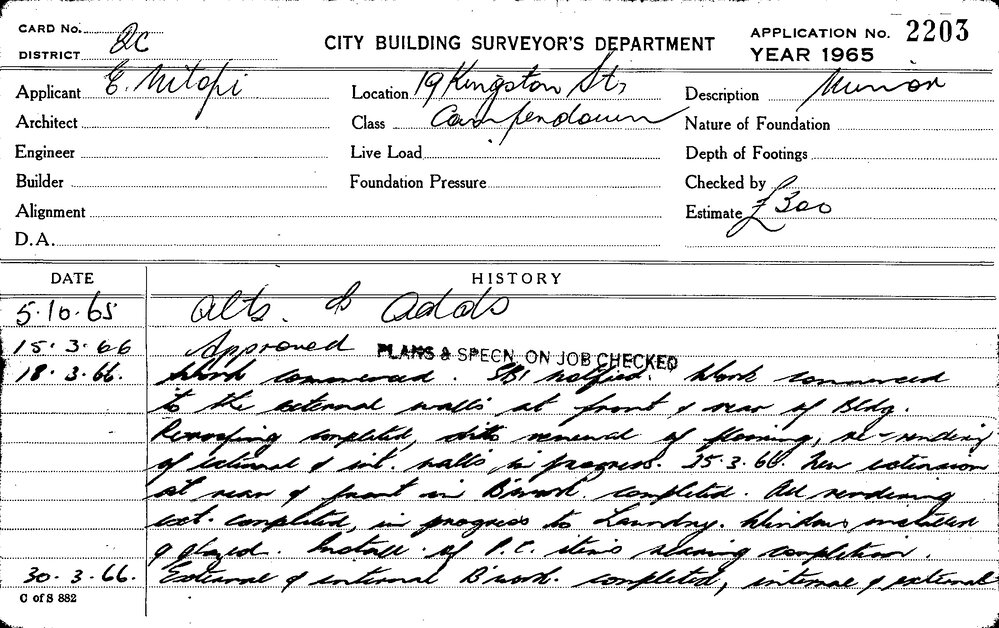 CARD No.
DISTRICT QC
CITY BUILDING SURVEYOR'S DEPARTMENT
APPLICATION No. 2203
YEAR 1965
Applicant E. Nitopi
Location 19 Kingston St,
Description Minor
Architect
Class Camperdown
Nature of Foundation
Engineer
Live Load
Depth of Footings
Builder
Foundation Pressure
Checked by
Alignment
Estimate £300
D.A.
DATE HISTORY
5.10.65 Alts. & Adds
15.3.66 Approved PLANS & SPECN. ON JOB CHECKED
18.3.66. Work commenced. notified. Work commenced
to the external walls at front & rear of Bldg.
Reroofing completed, renewal of flooring, re-rendering
of external & int. walls in progress. 25.3.66. New extension
at rear & front in B'work completed. All rendering
ext. completed, in progress to Laundry. Windows installed
& glazed. Install. of P.C. items nearing completion.
30.3.66. External & internal B'work. completed, internal & external
C of S 882